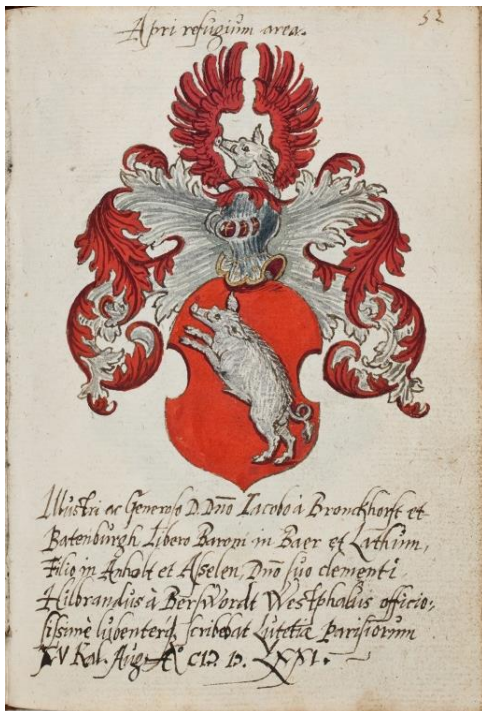 52
Apri refugium area.
Illustri ac Generoso D. Dno Iacobo à Bronckhorst et
Batenburgh Libero Baroni in Baer et Lathum,
Filio in Anholt et Asselen, Dno suo clementi
Hilbrandus à Berswordt Westphalus officio:
sissimè lubenterq. scribebat Lutetiæ Parisiorum
XV Kal. Aug. Aº CIↃ. IↃ. LXXI.